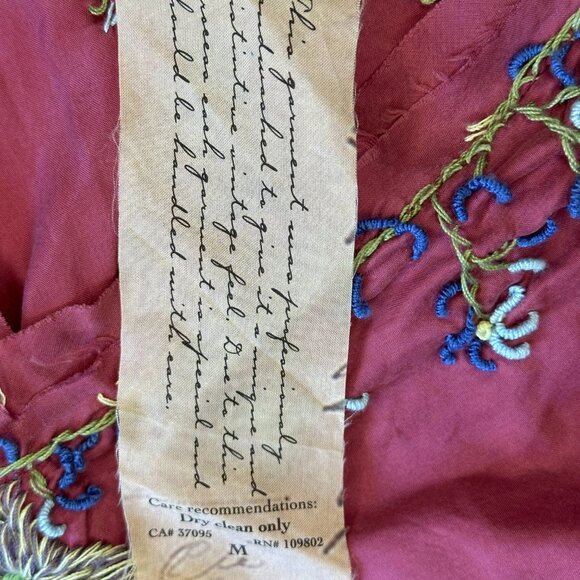 This garment was professionally
handwashed to give it a unique and
distinctive vintage feel. Due to this
process each garment is special and
should be handled with care.
Care recommendations:
Dry clean only
CA# 37095 M RN# 109802